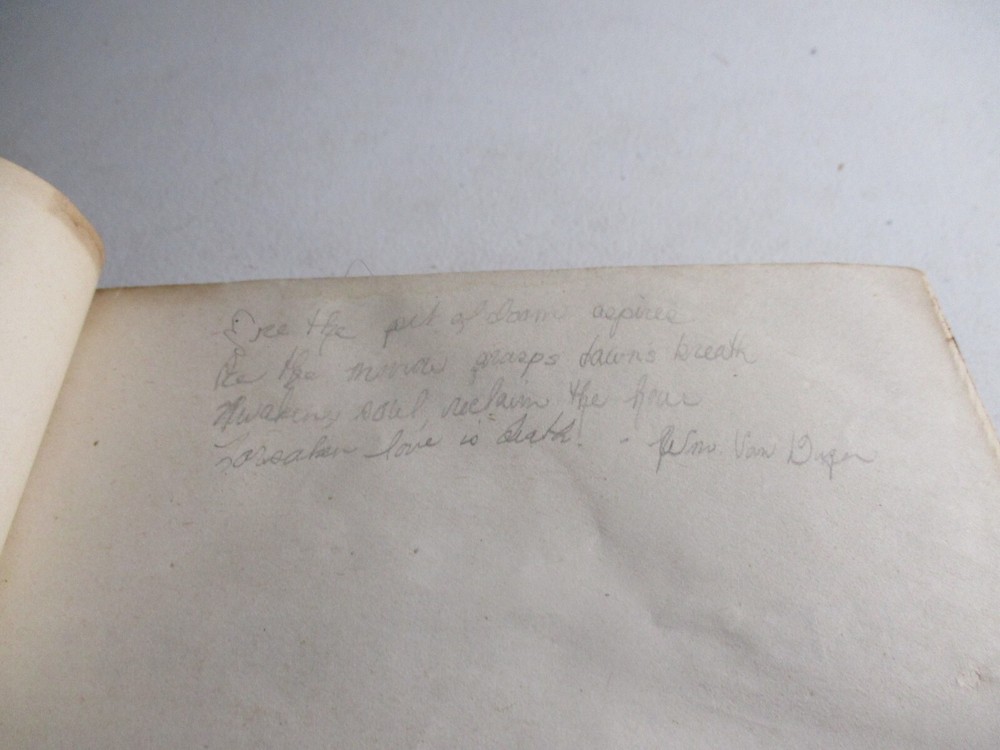 Ere the pit of doom aspires
Ere the morrow grasps dawns breath
Awaking soul, reclaim the hour
Forsaken love is death. - Wm. Van